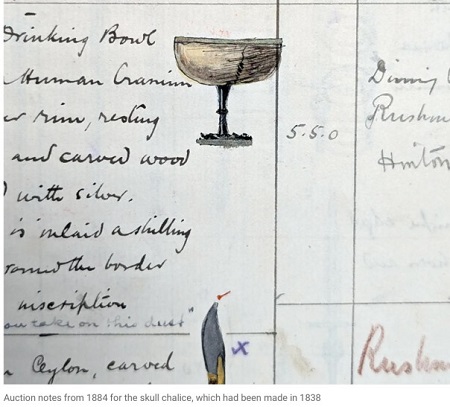 Drinking Bowl
Human Cranium
rim, resting
and carved wood
with silver.
is inlaid a shilling
round the border
inscription
on this dust"
Ceylon, carved
5.5.0
Dining
Rushm
Hinton
x
Rushm
Auction notes from 1884 for the skull chalice, which had been made in 1838